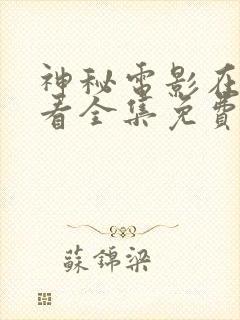 神秘電影在
看全集免費
蘇錦梁